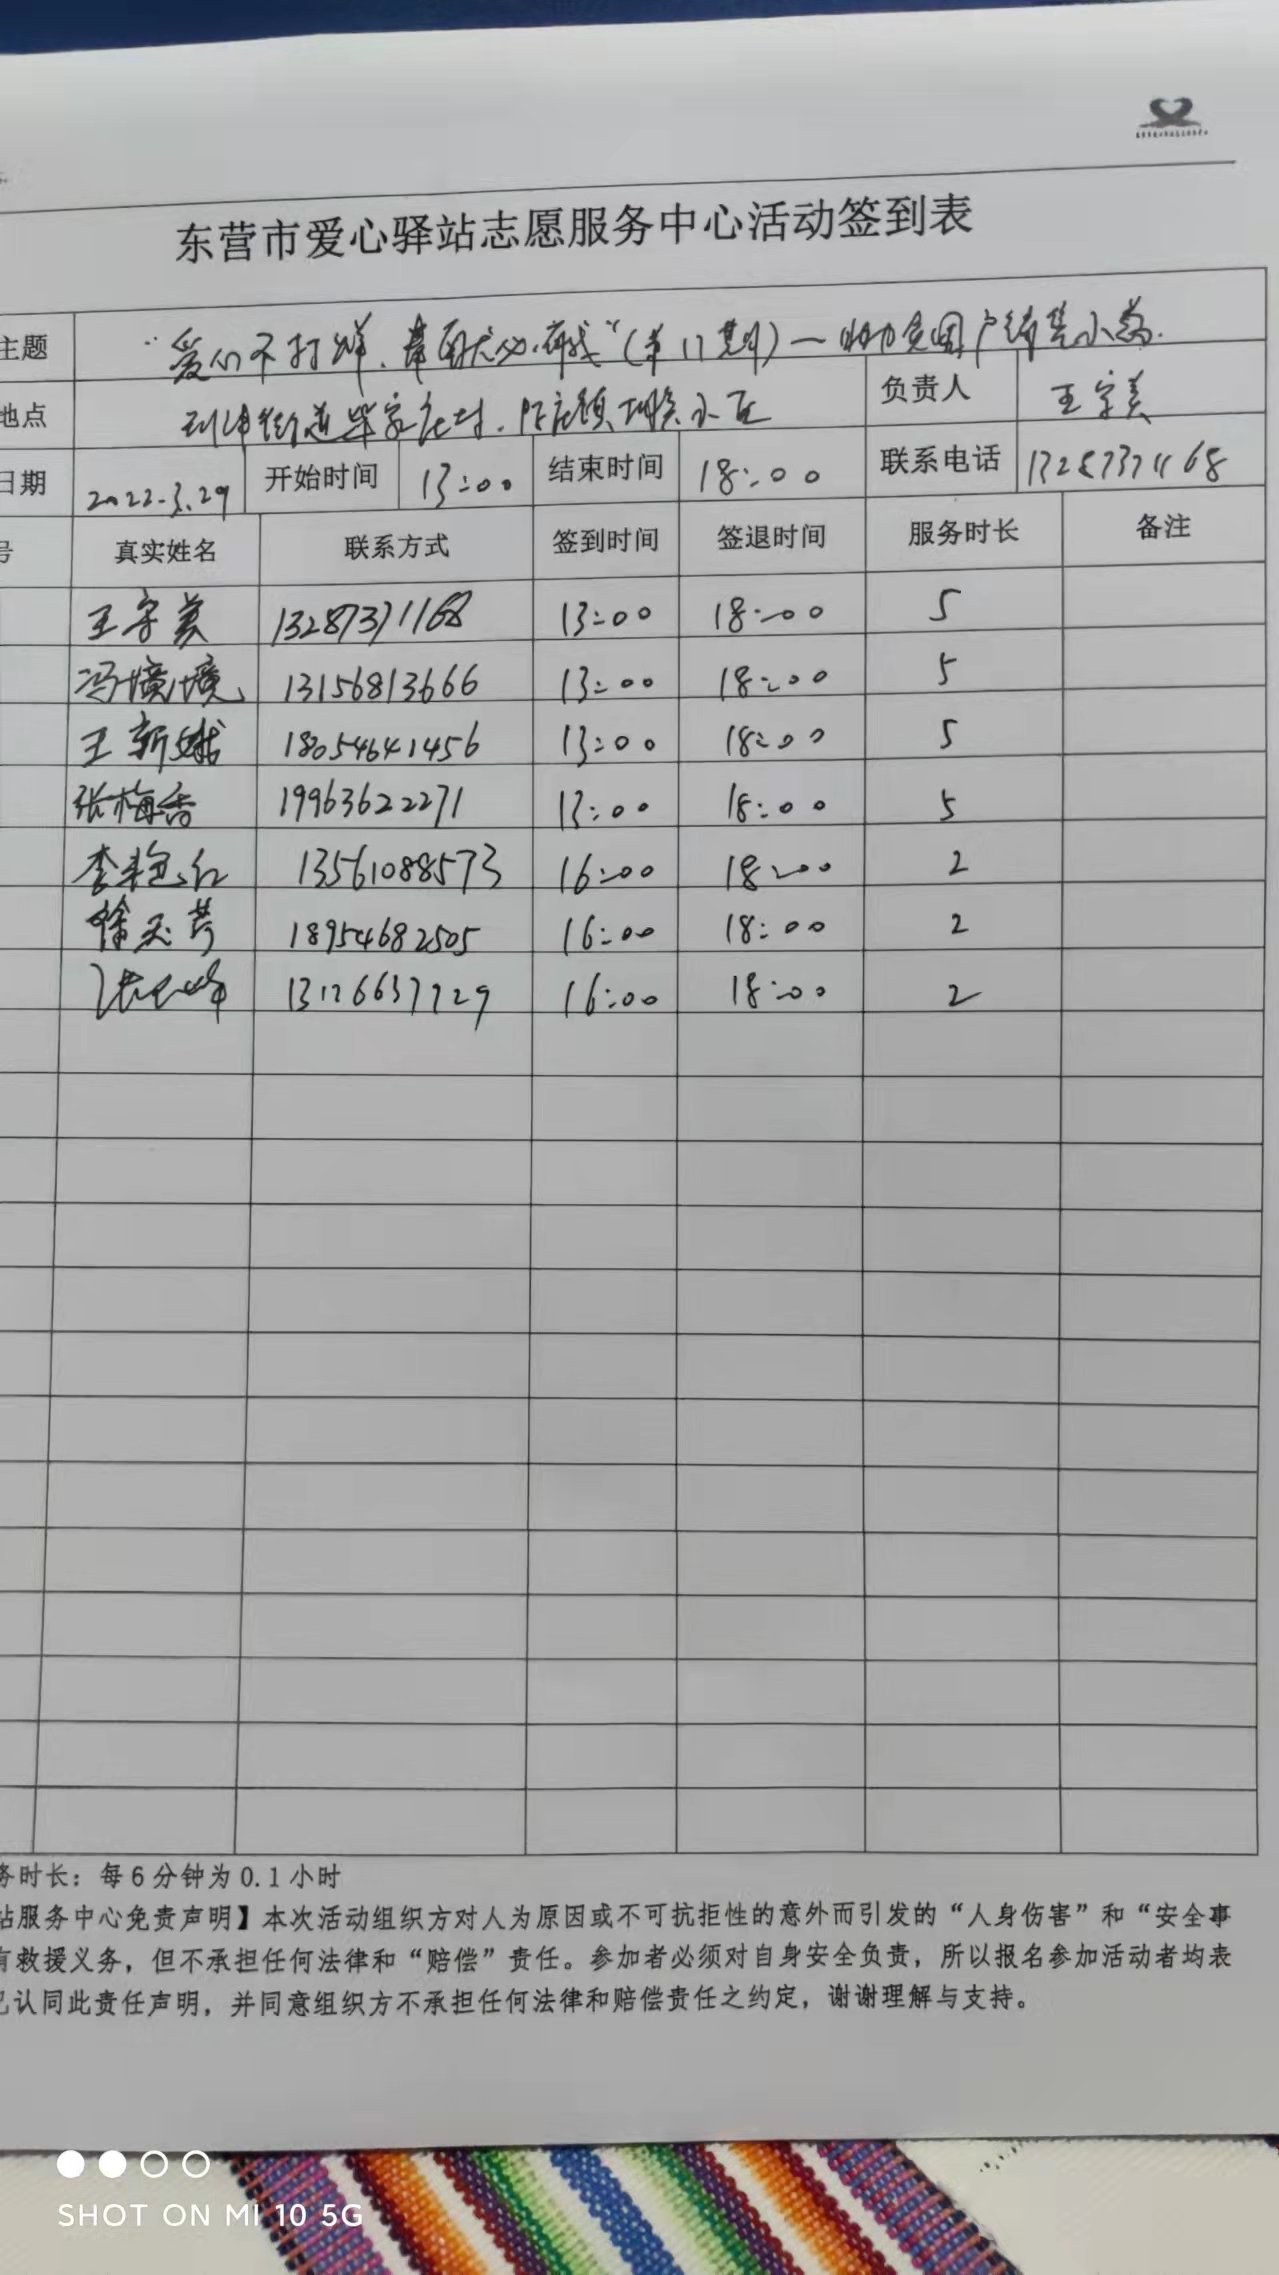 东营市爱心驿站志愿服务中心活动签到表
主题 "爱心不打烊, (第17期)—协助贫困户
地点 街道 家庄村. 小区 负责人 王字美
日期 2022.3.29 开始时间 13:00 结束时间 18:00 联系电话 13287371168
号 真实姓名 联系方式 签到时间 签退时间 服务时长 备注
王字美 13287371168 13:00 18:00 5
冯 13156813666 13:00 18:00 5
王新娥 18054641456 13:00 18:00 5
张梅香 19963622271 13:00 18:00 5
李艳红 13561088573 16:00 18:00 2
徐玉芹 18954682505 16:00 18:00 2
峰 16:00 18:00 2
务时长：每6分钟为0.1小时
站服务中心免责声明】本次活动组织方对人为原因或不可抗拒性的意外而引发的“人身伤害”和“安全事
有救援义务，但不承担任何法律和“赔偿”责任。参加者必须对自身安全负责，所以报名参加活动者均表
已认同此责任声明，并同意组织方不承担任何法律和赔偿责任之约定，谢谢理解与支持。
SHOT ON MI 10 5G